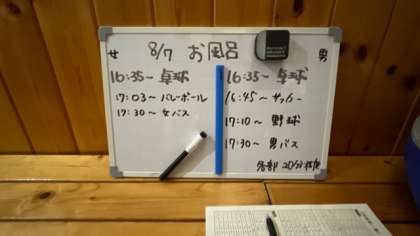 8/7 お風呂
女
16:35～ 卓球
17:03～ バレーボール
17:30～ 女バス
男
16:35～ 卓球
16:45～ サッカー
17:10～ 野球
17:30～ 男バス
各部 20分程度